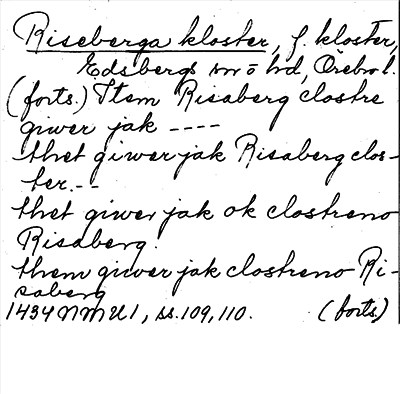 Riseberga kloster, f. kloster,
Edsbergs sn o hd, Örebro l.
(forts.) Item Risaberg clostre
giwer jak ----
thet giwer jak Risaberg clos-
ter.--
thet giwer jak ok clostreno
Risaberg.
them giwer jak clostreno Ri-
saberg
1434 NMU 1, ss. 109, 110. (forts)